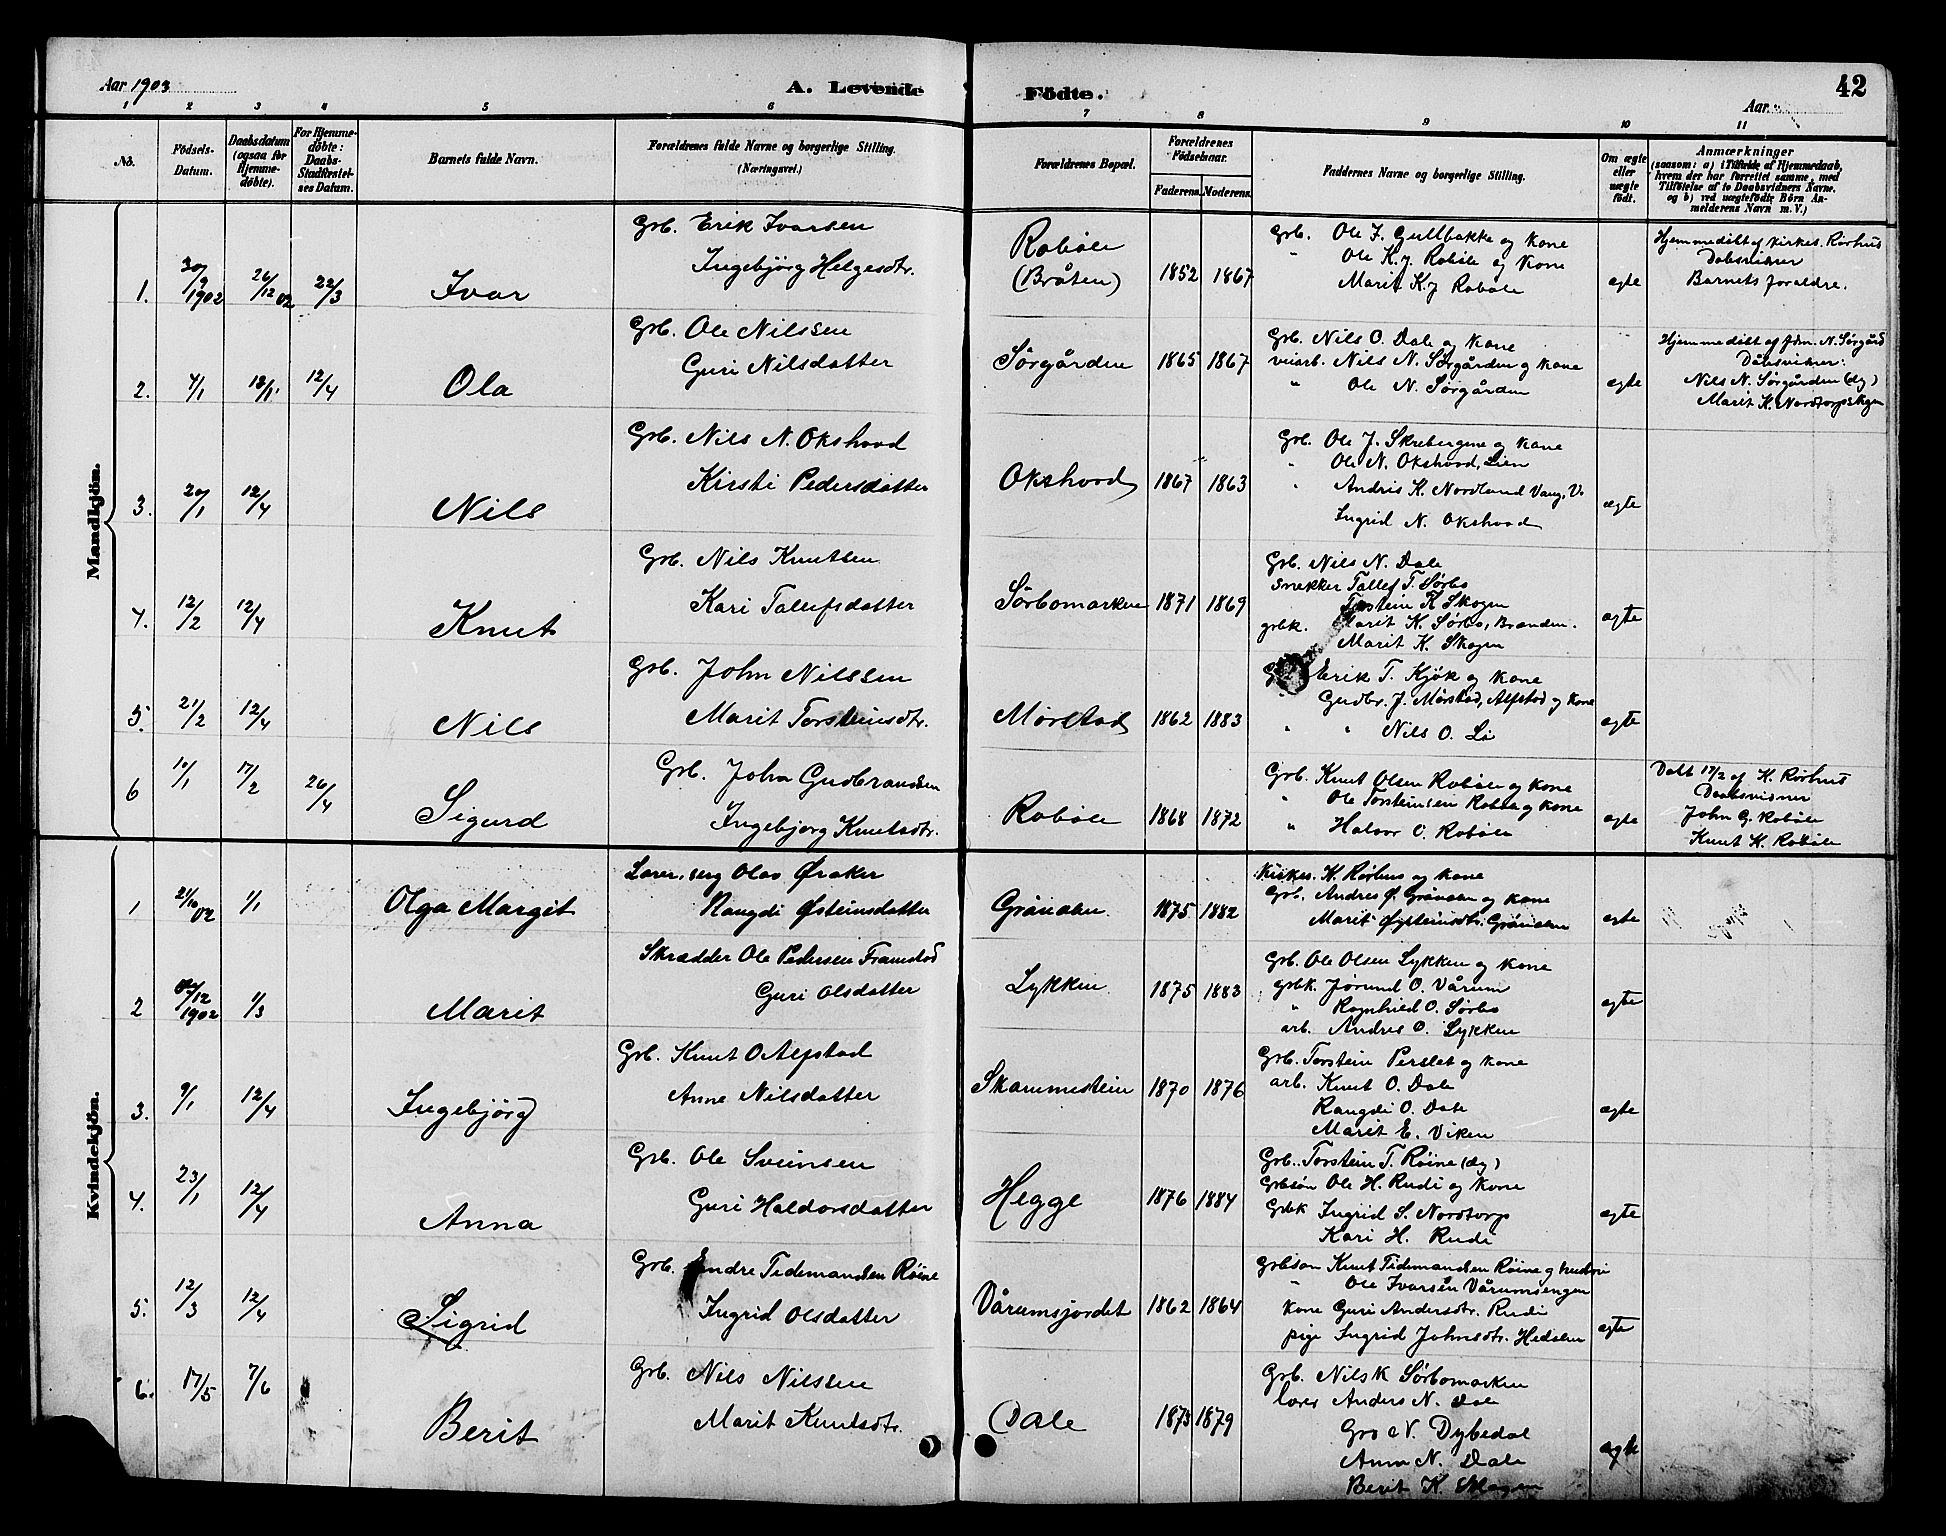 Aar 1903 A. Levende Födte. Aar 42
1 2 3 4 5 6 7 8 9 10 11
No. Födsels-Datum. Daabsdatum (ogsaa for Hjemme-döbte). For Hjemme-döbte: Daabs-Stadfæstel-ses Datum. Barnets fulde Navn. Forældrenes fulde Navne og borgerlige Stilling. (Næringsvei.) Forældrenes Bopæl. Forældrenes Födselsaar. Faderens. Moderens. Faddernes Navne og borgerlige Stilling. Om ægte eller uægte födt. Anmærkninger (saasom: a) i Tilfælde af Hjemmedaab, hvem der har forrettet samme, med Tilföielse af to Daabsvidners Navne. og b) ved uægtefödte Börn An-melderens Navn m. V.)
Mandkjön.
1. 30/9 1902 26/12 02 22/3 Ivar
Grb. Erik Ivarsen
Ingebjörg Helgesdtr.
Robøle
(Bråten) 1852 1867
Grb. Ole J. Gullbakke og Kone
" Ole K.J. Robøle og Kone
Marit K.J Robøle
ægte
Hjemmedöbt af kirkes. Rørhus
Dabsvidner
Barnets foraldre.
2. 4/1 18/1 12/4 Ola
Grb. Ole Nilssen
Guri Nilsdatter
Sørgården 1865 1867
Grb. Nils O. Dale og Kone
veiarb. Nils N. Sørgården og Kone
" Ole N. Sørgården
ægte
Hjemmedöbt af Jdm. N. Sørgård
Dåbsvidner:
Nils N. Sørgården (dy)
Marit K. Nordtorpskgen
3. 20/1 12/4 Nils
Grb. Nils N. Okshovd
Kirsti Pedersdatter
Okshovd 1867 1863
Grb. Ole J. Skrebergene og Kone
" Ole N. Okshovd, Lien
" Andris K. Nordland Vang, V.
Ingrid N. Okshovd
ægte
4. 12/2 12/4 Knut
Grb. Nils Knutsen
Kari Tallefsdatter
Sørbomarken 1871 1869
Grb. Nils N. Dale
Snekker Tallef T. Sørbo
Torstein K Skogen
grbk. Marit K. Sørbo, Branden.
Marit K. Skogen
ægte
5. 21/2 12/4 Nils
Grb. John Nilssen
Marit Torsteinsdtr.
Mørstad 1862 1883
Erik T. Kjøk og Kone
Gudbr. J. Mørstad, Alfstad og Kone
" " Nils O. Li
ægte
6 10/1 17/2 26/4 Sigurd
Grb. John Gudbrandsen
Ingebjørg Knutsdtr.
Robøle 1868 1872
Grb. Knut Olsen Robøle og Kone
" Ole Torsteinsen Robøle og Kone
" Halvor O. Robøle
ægte
Döbt 17/2 af K. Rørhus
Daabsvidner
John G. Robøle
Knut K. Robøle
Kvindekjön.
1 21/10 02 1/1 Olga Margit
Lærer, serg Olav Øraker
Rangdi Østeinsdatter
Grånalen 1875 1882
Kirkes. K. Rørhus og Kone
Grb. Andres Ø. Grånalen og Kone
Marit Øysteinsdtr. Grånalen
ægte
2 /12 1902 1/3 Marit
Skrædder Ole Pedersen Framstad
Guri Olsdatter
Lykken 1875 1883
Grb. Ole Olsen Lykken og Kone
grbk. Jørund O. Vårum
" Ragnhild O. Sørbo
arb. Andres O. Lykken
ægte
3. 9/1 12/4 Ingebjørg
Grb. Knut O Alfstad
Anne Nilsdatter
Skammestein 1870 1876
Grb. Torstein Perslet og Kone
arb. Knut O. Dale
Rangdi O. Dale
Marit E. Viken
ægte
4. 23/1 12/4 Anna
Grb. Ole Sveinsen
Guri Haldorsdatter
Hegge 1876 1884
Grb. Torstein T. Røine (dy)
Grbsøn Ole H. Rudi og Kone
Grbk Ingrid S. Nordtorp
Kari H. Rudi
ægte
5. 12/3 12/4 Sigrid
Grb. Endre Tidemandsen Røine
Ingrid Olsdatter
Vårumsjordet 1862 1864
Grbsøn Knut Tidemandsen Røine og hustru
" Ole Ivarsån Vårumsengen
Kone Guri Andersdtr. Rudi
pige Ingrid Johnsdtr. Hedalen
ægte
6. 17/5 7/6 Berit
Grb. Nils Nilssen
Marit Knutsdtr.
Dale 1873 1879
Grb. Nils K Sørbomarken
lærer Anders N. Dale
Gro N. Dybedal
Anna N. Dale
Berit K Skogen
ægte